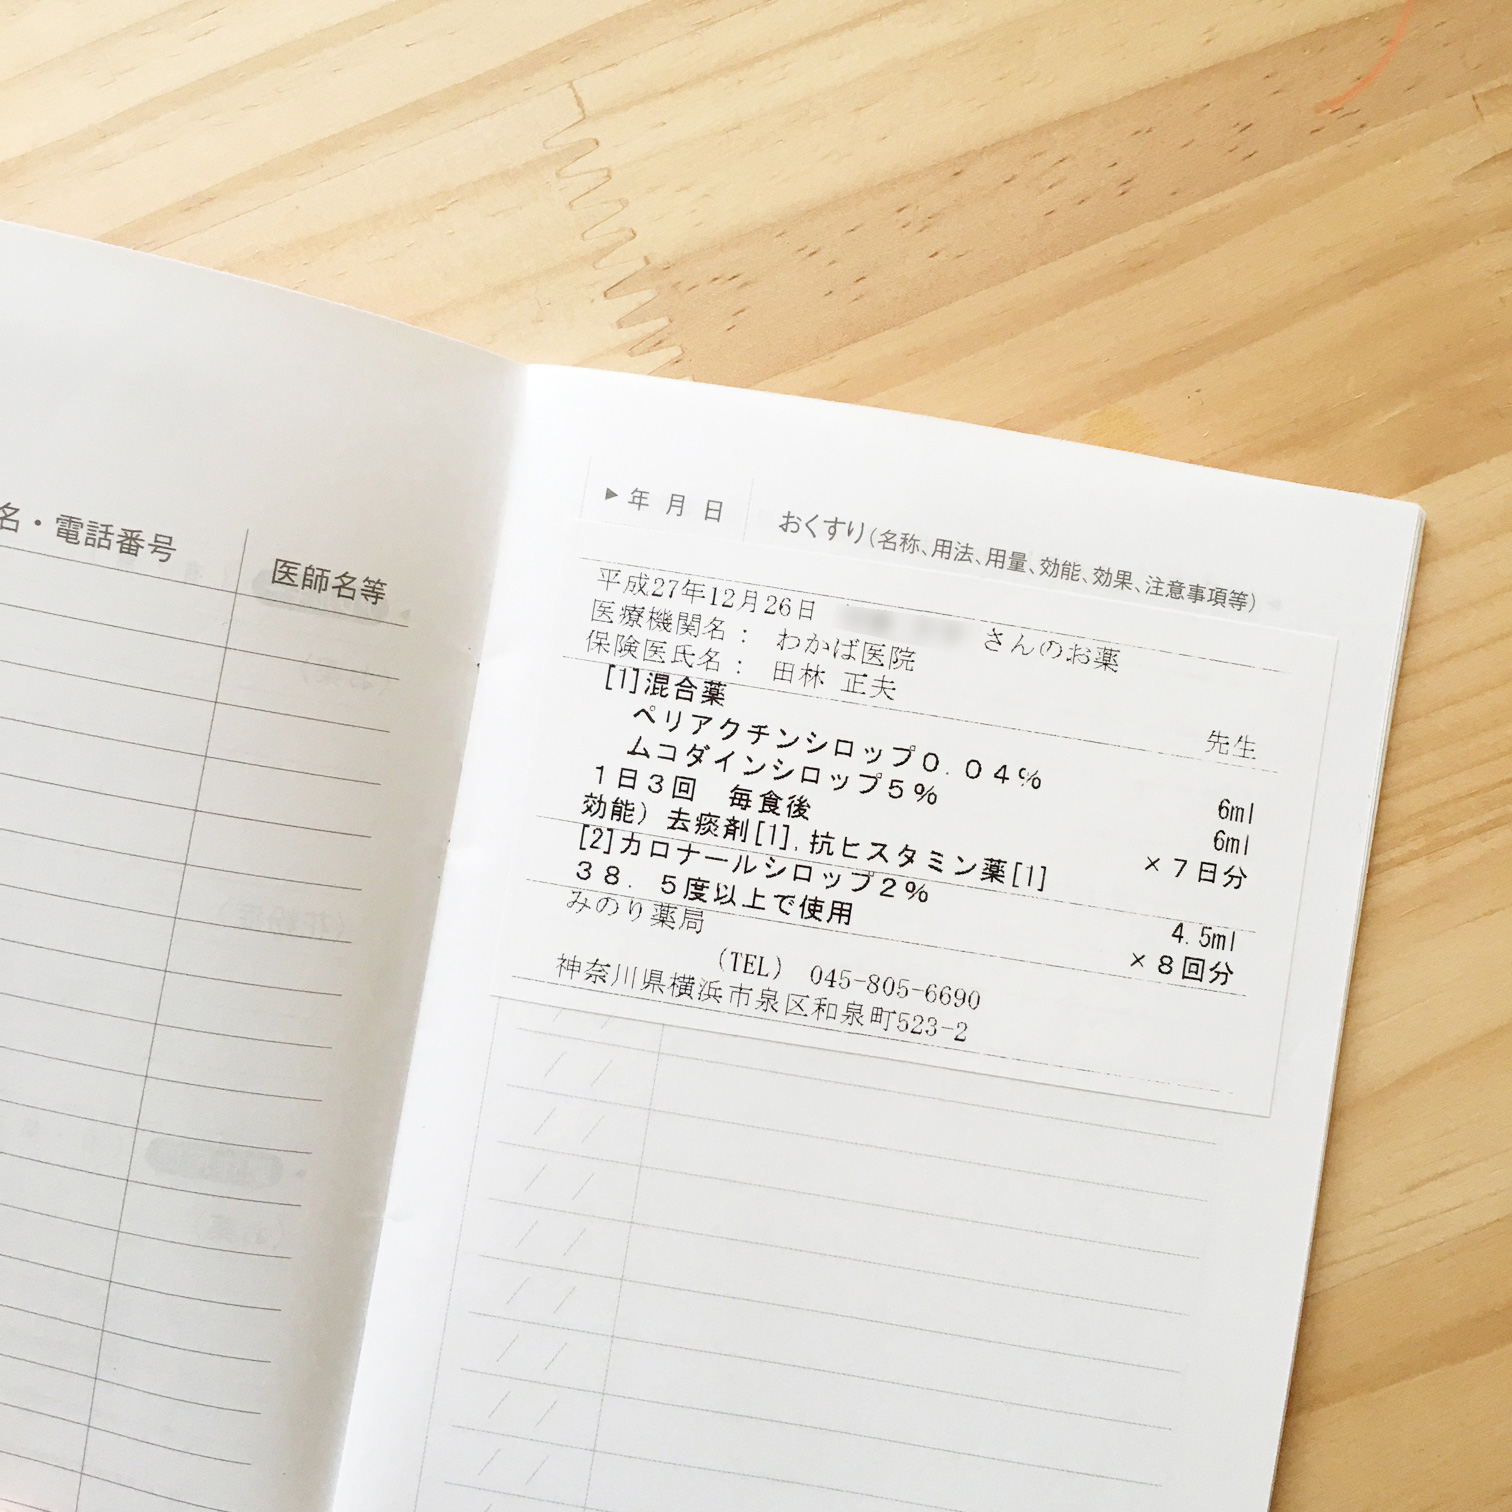 名・電話番号
医師名等
▶年月日
おくすり(名称、用法、用量、効能、効果、注意事項等)
平成27年12月26日 さんのお薬
医療機関名： わかば医院
保険医氏名： 田林 正夫 先生
[1]混合薬
ペリアクチンシロップ０．０４% 6ml
ムコダインシロップ５% 6ml
１日３回 毎食後 ×７日分
効能）去痰剤[1],抗ヒスタミン薬[1]
[2]カロナールシロップ２% 4.5ml
３８．５度以上で使用 ×８回分
みのり薬局
(TEL) 045-805-6690
神奈川県横浜市泉区和泉町523-2